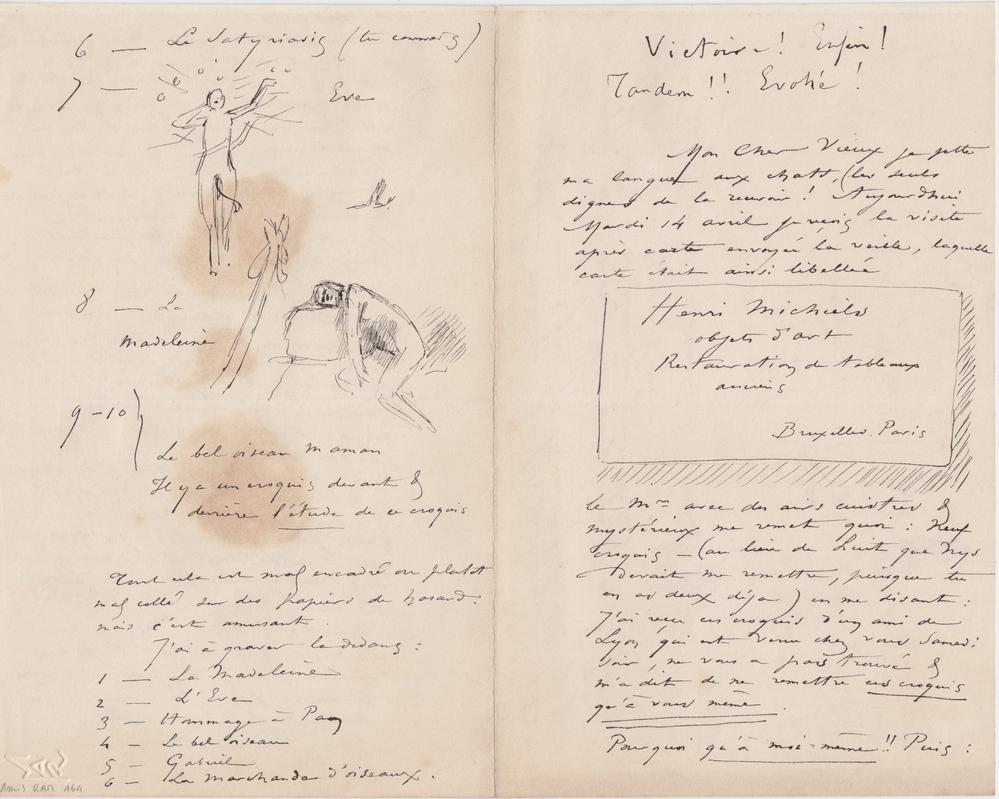 Victoire ! Enfin !
Tandem !! Evohé !
Mon Cher Vieux je jette
ma langue aux chats, (les seuls
dignes de la recevoir ! Aujourdhui
Mardi 14 avril je reçois la visite
après carte envoyée la veille, laquelle
carte était ainsi libellée
Henri Michiels
objets d'art
Restauration de tableaux
anciens
Bruxelles. Paris
le Mr avec des airs cuistres &
mystérieux me remet quoi : Neuf
croquis — (au lieu de huit que Nys
devait me remettre, puisque tu
en as deux déja) en me disant :
J'ai reçu ces croquis d'un ami de
Lyon qui est venu chez vous Samedi
soir, ne vous a pas trouvé &
m'a dit de ne remettre ces croquis
qu'à vous même.
Pourquoi qu'à moi-même !! Puis :
6 — Le Satyriasis (tu connais)
7 — Eve
8 — La
Madeleine
9-10
Le bel oiseau maman
Il y a un croquis devant &
derrière l'étude de ce croquis
Tout cela est mal encadré ou plutot
mal collé sur des papiers de hasard.
mais c'est amusant.
J'ai à graver là dedans :
1 — La Madeleine
2 — L'Eve
3 — Hommage à Pan
4 — Le bel oiseau
5 — Gabriel
6 — La Marchande d'oiseaux.
Amis RAM 164